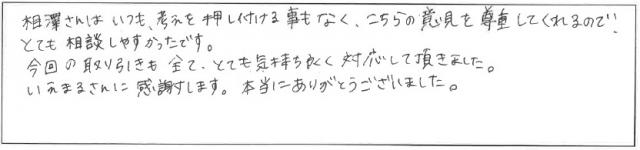 相澤さんはいつも、考えを押し付ける事もなく、こちらの意見を尊重してくれるので、
とても相談しやすかったです。
今回の取り引きも全て、とても気持ち良く対応して頂きました。
いえまるさんに感謝します。本当にありがとうございました。